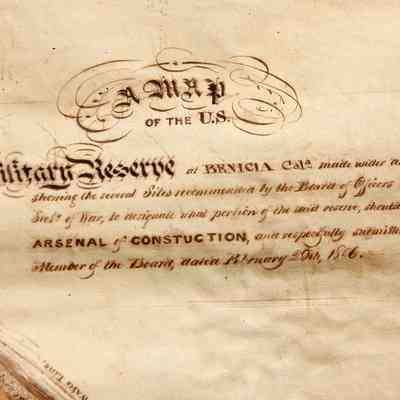 A MAP
OF THE U.S.
Military Reserve at BENICIA Cala. made under
shewing the several Sites recommended by the Board of Officers
Secy. of War, to designate what portion of the said reserve, should
ARSENAL of CONSTUCTION, and respectfully submitte
Member of the Board, dated February 20th, 18 6.
Line